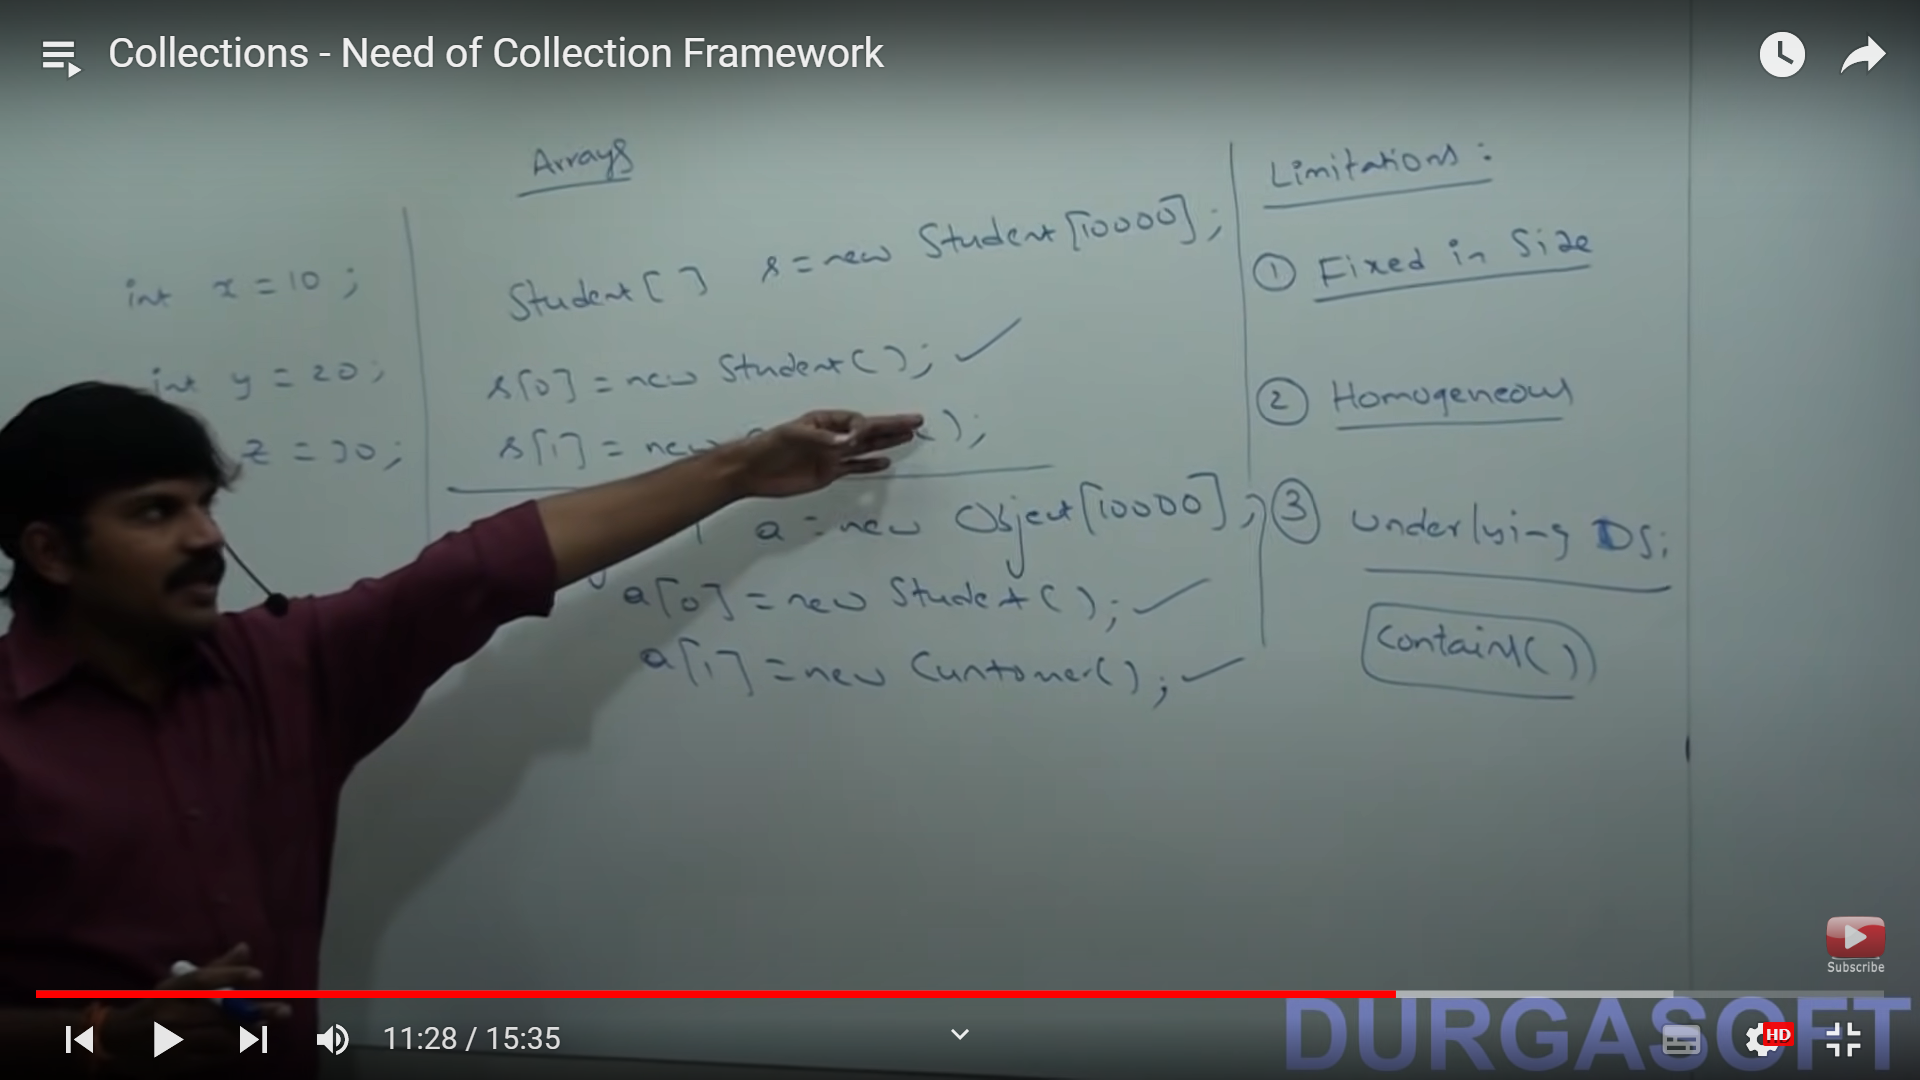 Collections - Need of Collection Framework
Arrays
int x = 10 ;
int y = 20 ;
z = 30 ;
Student [ ] s = new Student [10000] ;
s[0] = new Student ( ) ; ✓
s[1] = new ( ) ;
a = new Object [10000] ;
a[0] = new Student ( ) ; ✓
a[1] = new Customer ( ) ; ✓
Limitations :
① Fixed in Size
② Homogeneous
③ Underlying DS.
Contains( )
Subscribe
DURGASOFT
11:28 / 15:35
HD